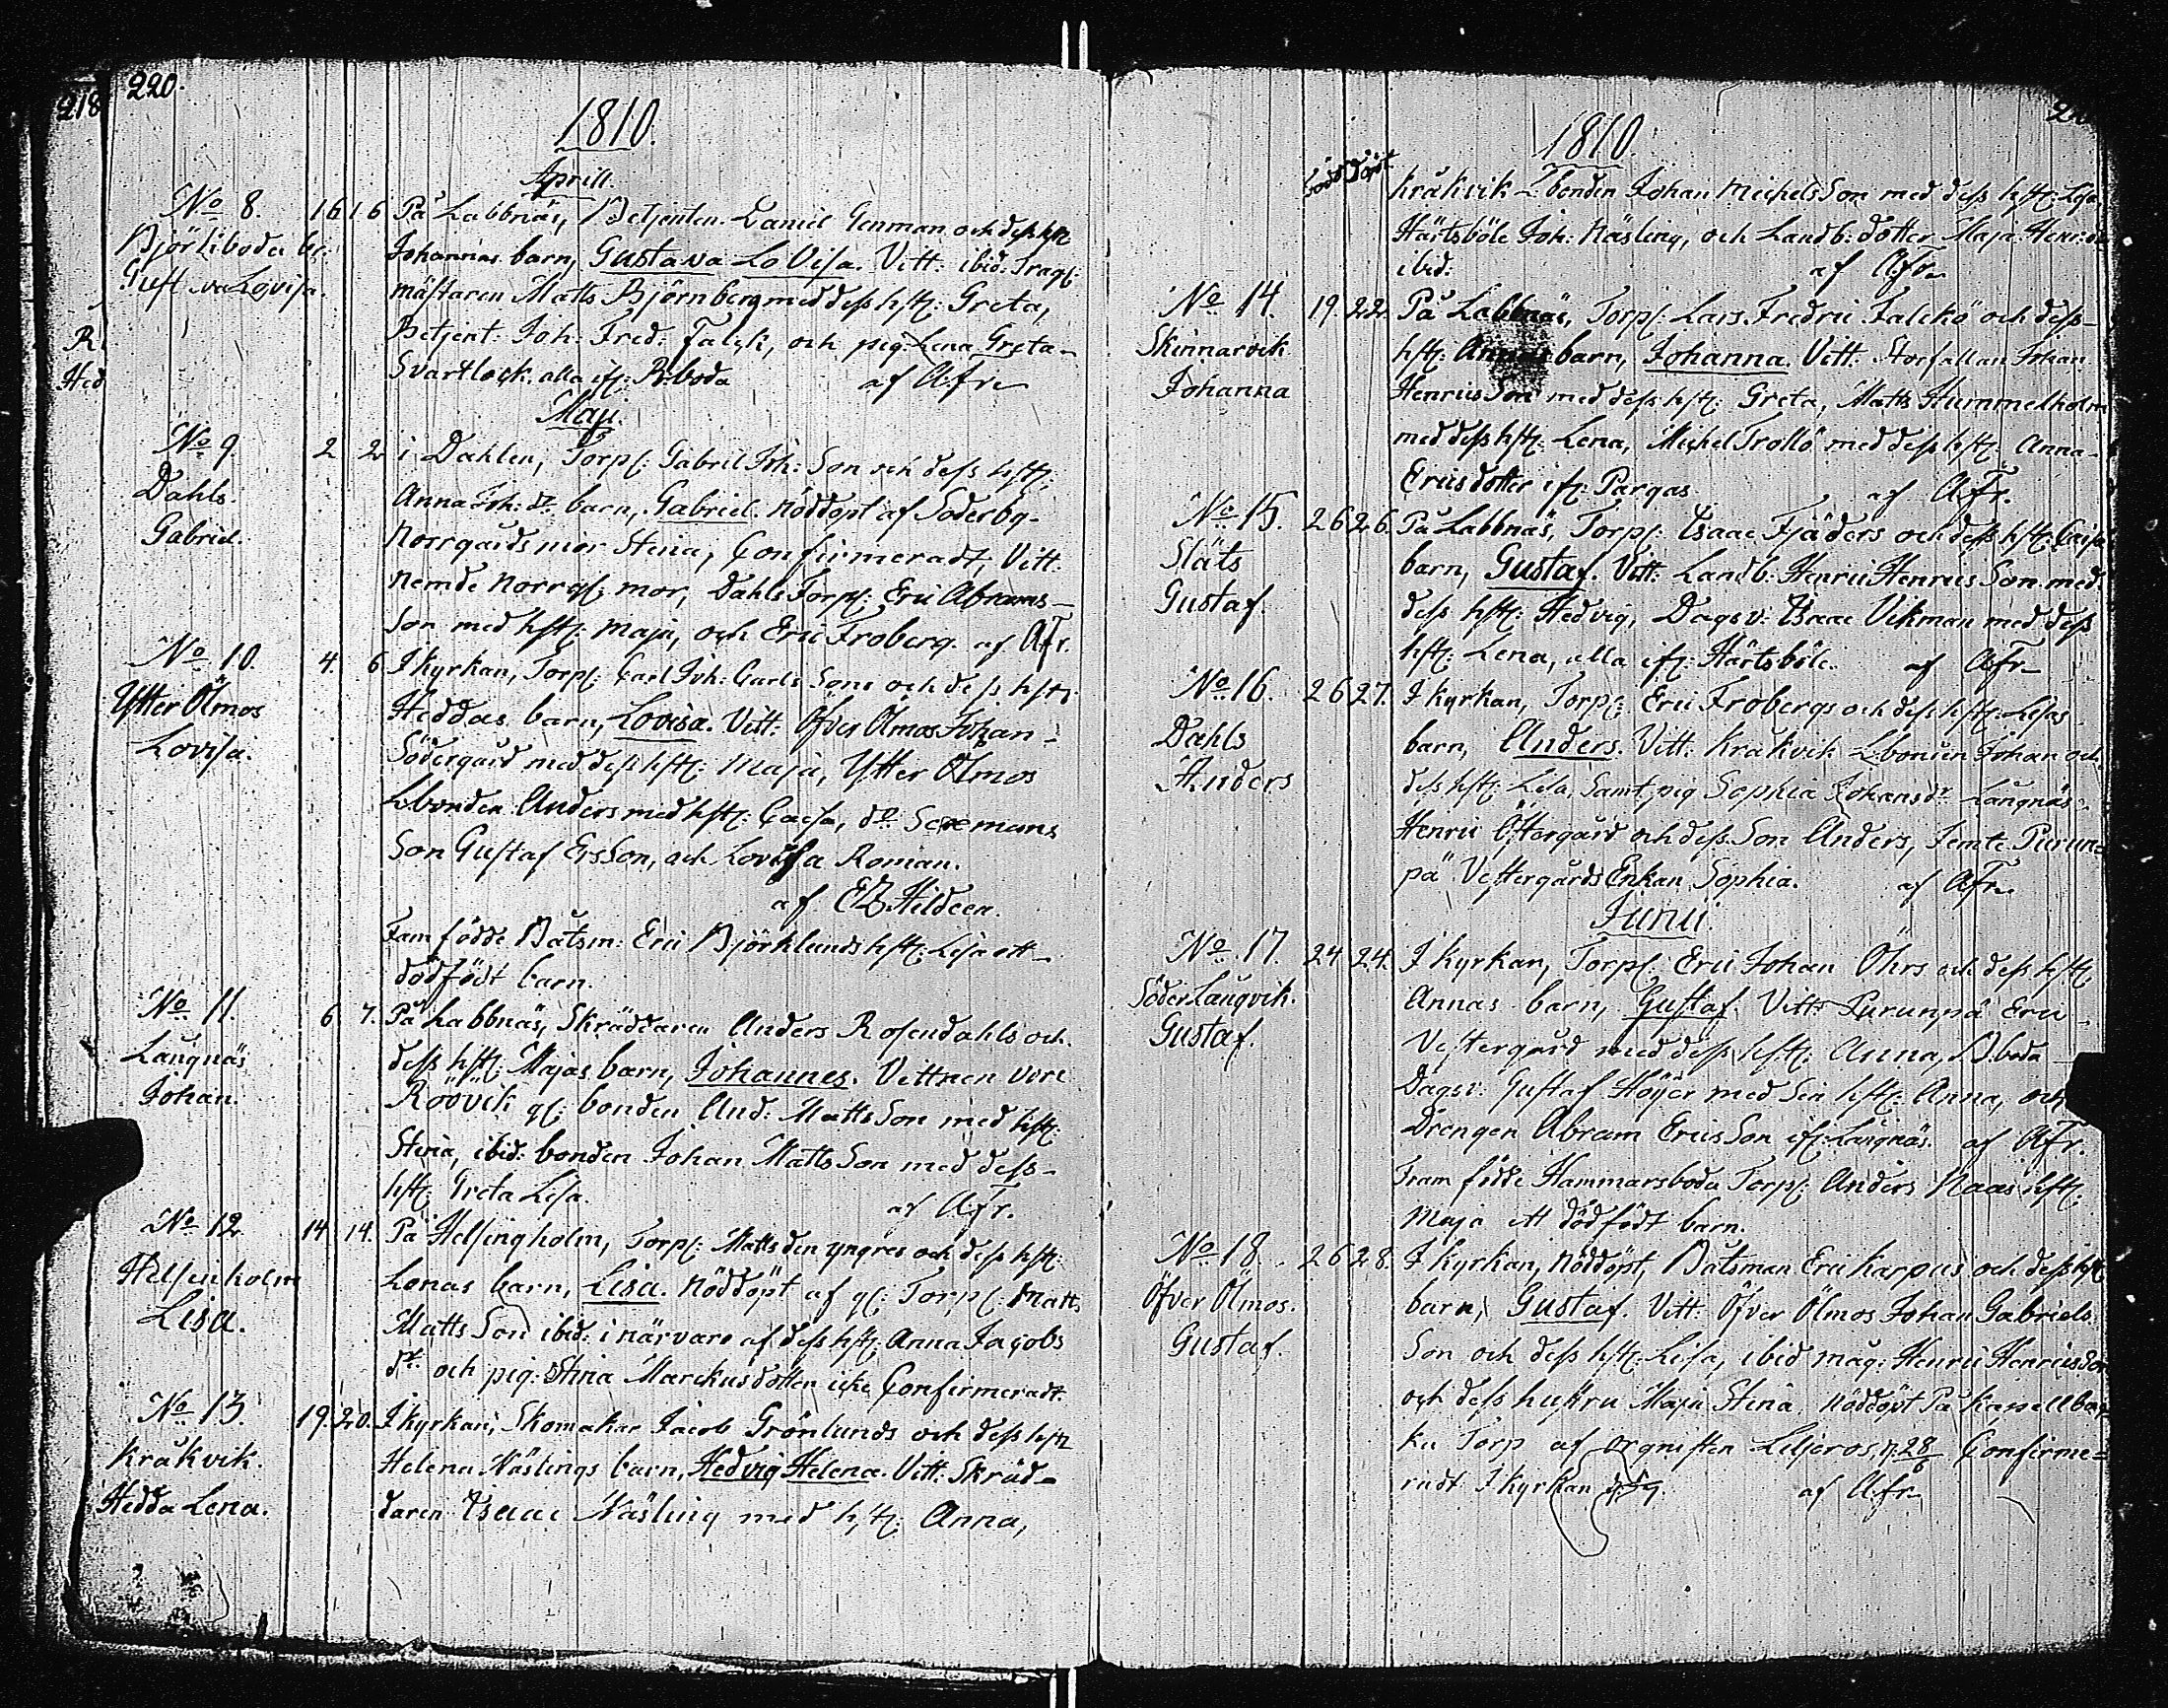 218
220.
1810.
Aprill.
No 8. 16 16 På Labbnäs, Betjenten Daniel Genman och dess hst
Björkboda br. Johannas barn, Gustava Lovisa. Vitt: ibid:
Lovisa. mästaren Matts Björnberg med dess hst: Greta,
Betjent: Joh: Fred: Falck, och pig: Lena Greta
Svartlock, alla ifr: B:boda af AFr
Maji.
No 9 2 2 i Dahlen, Torp: Gabriel Joh: Son och dess hst:
Dahls. Anna Joh: dr barn, Gabriel. Nöddöpt af Söderby
Gabriel. Norrgårds mor Stina, Confirmeradt, Vitt:
Nemde Norrg: mor, Dahls Torp: Eric Abrams
Son med hst: Maja, och Eric Froberg. af AFr.
No 10. 4. 6 I kyrkan, Torp: Carl Joh: Carls Sons och dess hst:
Ytter Ölmos Heddas barn, Lovisa. Vitt: Öfver Ölmos Johan
Lovisa. Södergård med dess hst: Maja, Ytter Ölmos
L:bonden Anders med hst: Caisa, do
Son Gustaf ErsSon, och Lovisa Roman.
af EZ Hildeen.
Framfödde Båtsm: Eric Björklunds hst: Lisa ett
dödfödt barn.
No 11. 6 7. På Labbnäs, Skräddaren Anders Rosendahls och
Laugnäs dess hst: Majas barn, Johannes. Vittnen voro
Johan. Röövik gl: bonden And: Matts Son med hst:
Stina, ibid: bonden Johan Matts Son med dess
hst: Greta Lisa. af AFr.
No 12 14. 14. På Helsingholm, Torp: Matts den yngres och dess hst:
Helsinholm Lenas barn, Lisa. Nöddöpt af gl: Torp: Matts
Lisa. Matts Son ibid: i närvaro af dess hst: Anna Jacobs
dr och pig: Stina Marckusdotter icke Confirmeradt.
No 13. 19. 20. I kyrkan, Skomakar Jacob Grönlunds och dess hst
Kråkvik. Helena Näslings barn, Hedvig Helena. Vitt: Skräd-
Hedda Lena. daren Isaac Näsling med hst: Anna,
1810.
född döpt Kråkvik L:bonden Johan MichelsSon med dess hst: Lisa
Härtsböle Joh: Näsling, och Landb: dotter Maja
ibid: af AFr
No 14. 19. 22. På Labbnäs, Torp: Lars Fredric Falckö och dess
Skinnarvik hst: Annas barn, Johanna. Vitt: Johan
Johanna HenricsSon med dess hst: Greta, Matts Hummelholm
med dess hst: Lena, Michel Trollö med dess hst: Anna
Ericsdotter ifr: Pargas. af AFr.
No 15. 26 26. På Labbnäs, Torp: Isaac Fjäders och dess hst: Caisa
Släts barn, Gustaf. Vitt: Landb: Henric Henrics Son med
Gustaf. dess hst: Hedvig, Dagsv: Isaac Vikman med dess
hst: Lena, alla ifr: Härtsböle. af AFr
No 16. 26 27. I kyrkan, Torp: Eric Frobergs och dess hst: Lisas
Dahls barn, Anders. Vitt: Kråkvik L:bonden Johan och
Anders dess hst: Lisa, Samt pig Sophia Johansdr Laugnäs
Henric Östergård och dess Son Anders, Jemte Purun-
pä Vestergårds Enkan Sophia. af AFr.
Junii.
No 17. 24 24. I kyrkan, Torp: Eric Johan Öhrs och dess hst:
Söder Laugvik. Annas barn, Gustaf. Vitt: Purunpä Eric
Gustaf. Vestergård med dess hst: Anna, B:boda
Dagsv: Gustaf Höijer med sin hst: Anna, och
Drengen Abram EricsSon ifr: Laugnäs. af AFr.
Framfödde Hammarsboda Torp: Anders Naas hst:
Maja ett dödfödt barn.
No 18. 26 28. I kyrkan, Nöddöpt, Båtsman Eric Karpus och dess hst
Öfver Ölmos. barn, Gustaf. Vitt: Öfver Ölmos Johan Gabriels
Gustaf. Son och dess hst: Lisa, ibid måg: Henric HenricsSon
och dess hustru Maja Stina. Nöddöpt På
ka Torp af Orgnisten Liljeros, 28 Confirme-
radt I kyrkan af AFr